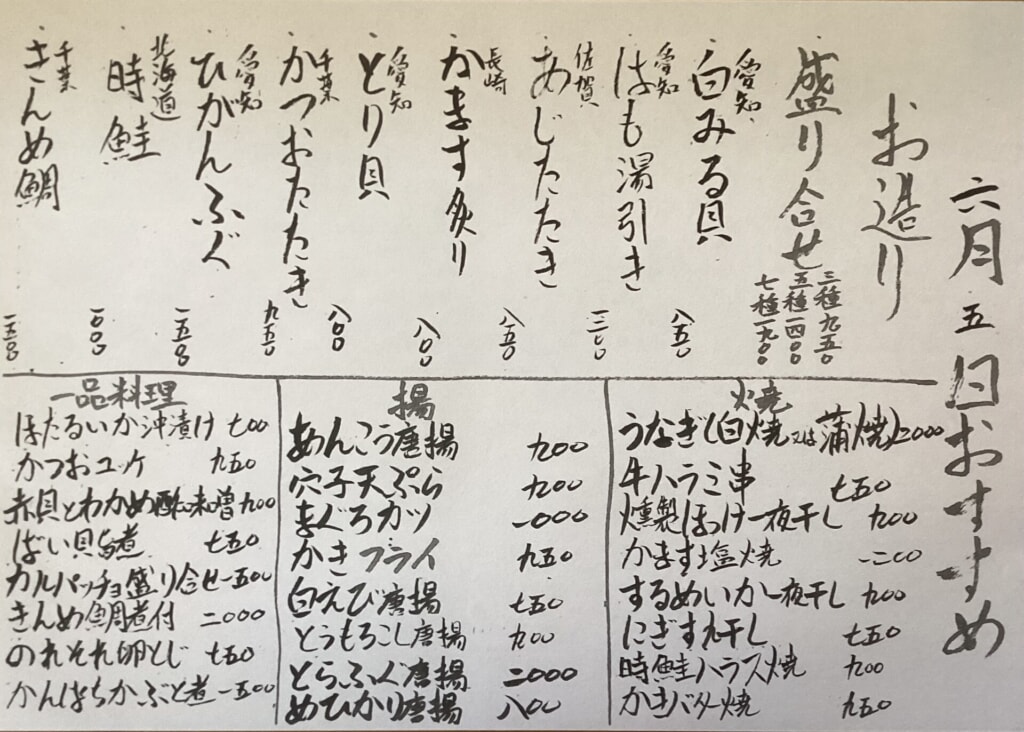 六月五日おすすめ
お造り
盛り合せ
三種九五〇
五種一四〇〇
七種一九〇〇
愛知
白みる貝
八五〇
愛知
はも湯引き
一二〇〇
佐賀
あじたたき
八五〇
長崎
かます炙り
八〇〇
愛知
とり貝
八〇〇
千葉
かつおたたき
九五〇
愛知
ひがんふぐ
一五〇〇
北海道
時鮭
一〇〇〇
千葉
きんめ鯛
焼
うなぎ(白焼又は蒲焼)二〇〇〇
牛ハラミ串 七五〇
燻製ほっけ一夜干し 九〇〇
かます塩焼 一二〇〇
するめいか一夜干し 九〇〇
にぎす丸干し 七五〇
時鮭ハラス焼 九〇〇
かきバター焼 九五〇
揚
あんこう唐揚 九〇〇
穴子天ぷら 九〇〇
まぐろカツ 一〇〇〇
かきフライ 九五〇
白えび唐揚 七五〇
とうもろこし唐揚 九〇〇
とらふぐ唐揚 二〇〇〇
めひかり唐揚 八〇〇
一品料理
ほたるいか沖漬け 七〇〇
かつおユッケ 九五〇
赤貝とわかめ酢味噌 九〇〇
ばい貝旨煮 七五〇
カルパッチョ盛り合せ 一五〇〇
きんめ鯛煮付 二〇〇〇
のれそれ卵とじ 七五〇
かんぱちかぶと煮 一五〇〇